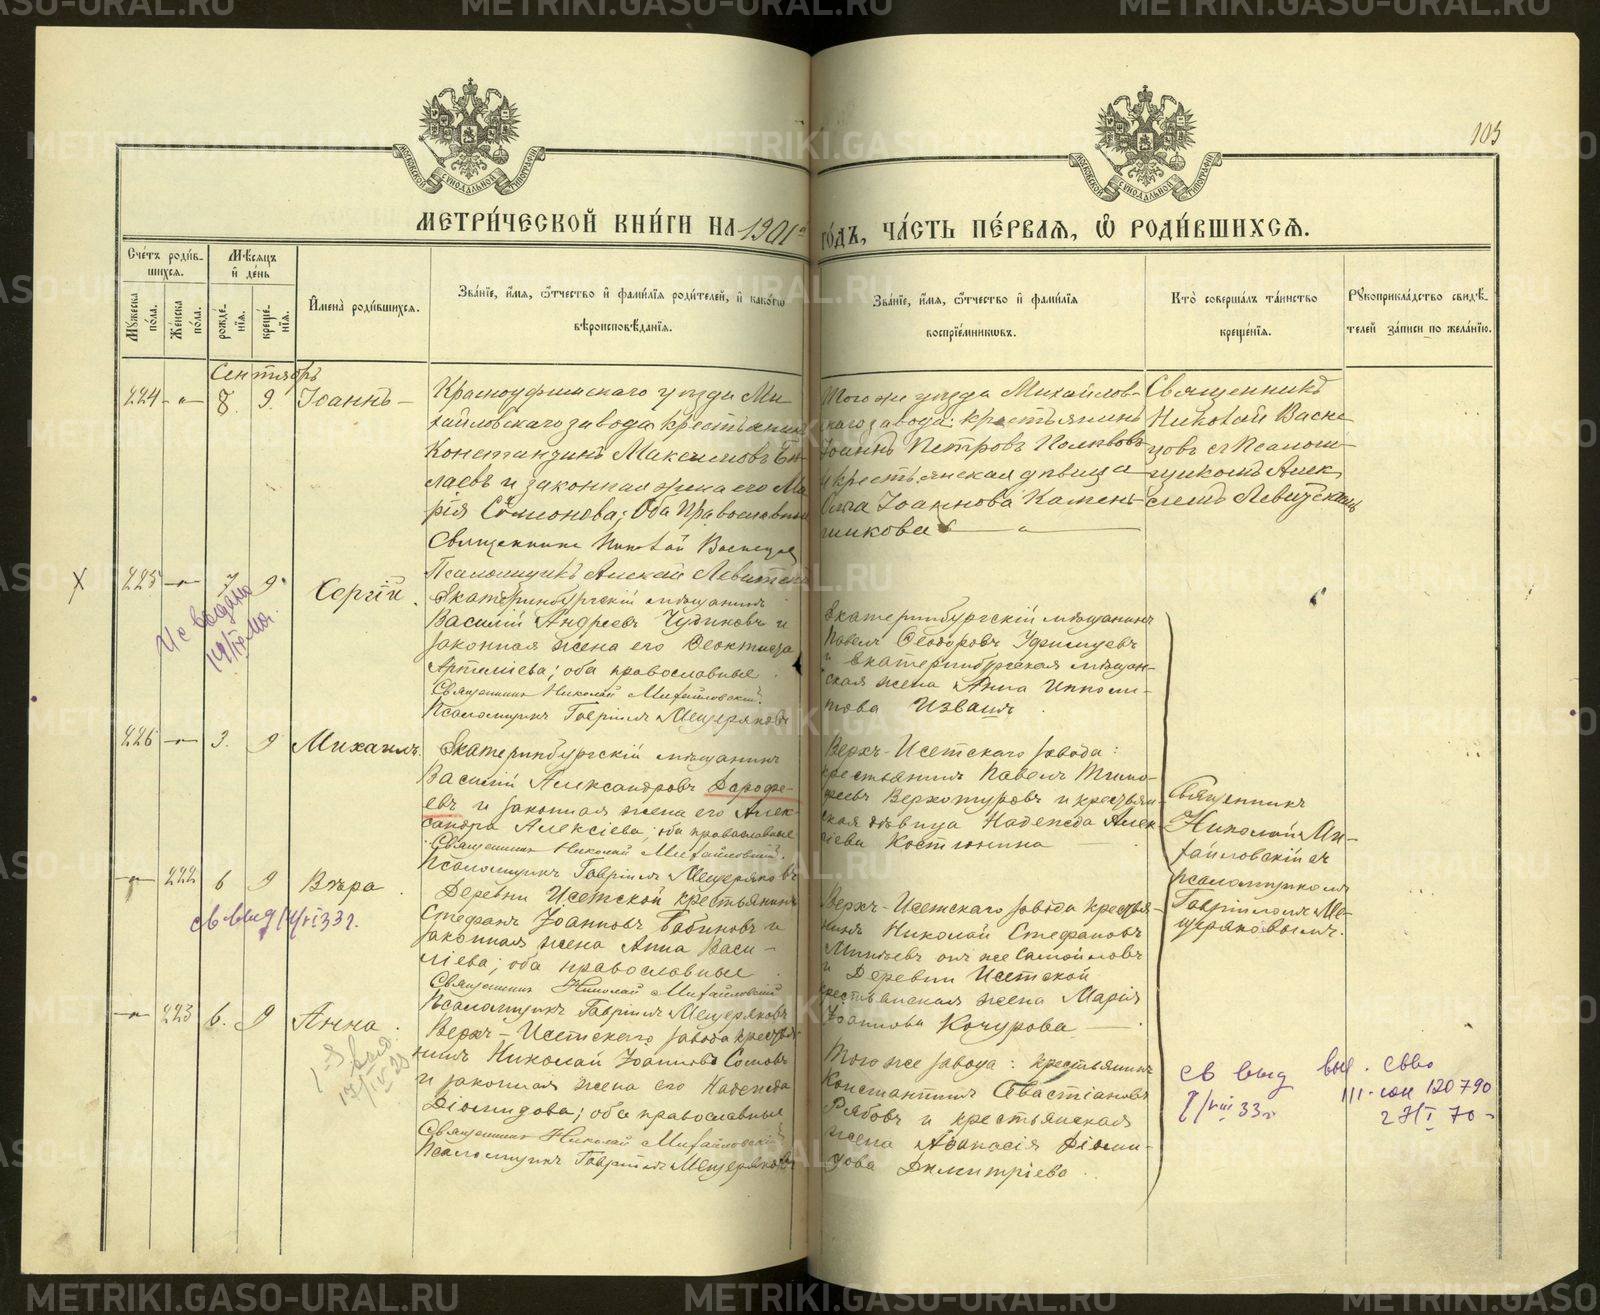 METRIKI.GASO-URAL.RU
105
МОСКОВСКОЙ СѴНОДАЛЬНОЙ ТИПОГРАФІИ
МОСКОВСКОЙ СѴНОДАЛЬНОЙ ТИПОГРАФІИ
МЕТРИ́ЧЕСКОЙ КНИ́ГИ НА 1901 й ГО́ДЪ, ЧА́СТЬ ПЕ́РВАЯ, Ѽ РОДИ́ВШИХСЯ.
Сче́тъ роди́в-
шихся.
Мꙋ́жеска по́ла.
Же́нска по́ла.
Мѣ́сяцъ и҆ де́нь
рожде́-
нїѧ.
креще́-
нїѧ.
И҆мена̀ роди́вшихся.
Зва́нїе, и҆́мя, ѻ҆́тчество и҆ фами́лїя роди́телей, и҆ како́гѡ
вѣроисповѣ́данїя.
Зва́нїе, и҆́мя, ѻ҆́тчество и҆ фами́лїя
воспрїе́мниковъ.
Кто̀ соверша́лъ та́инство
креще́нїя.
Рꙋкоприкла́дство свидѣ́-
телей за́писи по жела́нїю.
Сентябрь
224 -„- 8. 9. Іоаннъ
Красноуфимскаго уѣзда Ми-
хайловскаго завода крестьянинъ
Константинъ Максимовъ
и законная жена его Ма-
рія Симионова; Оба Православные
Священникъ Николай Васнецов
Псаломщикъ Алексѣй Левитскій
Того же уѣзда Михайлов-
скаго завода: крестьянинъ
Іоаннъ Петровъ
и крестьянская дѣвица
Іоаннова Камень-
щикова
Священникъ
Николай Васне
цовъ съ Псалом-
щикомъ Алек
сѣемъ Левитскимъ
Х 225 -„- 7 9. Сергій.
н/с выдано
14/IV 40г.
Екатеринбургскій мѣщанинъ
Василій Андреевъ Чудиновъ и
законная жена его Феоктиста
Артеміева; оба православные.
Священникъ Николай Михайловскій.
Псаломщикъ Гавріилъ Мещеряковъ
Екатеринбургскій мѣщанинъ
Павелъ Феодоровъ Уфимцевъ
и екатеринбургская мѣщан-
ская жена Анна Ипполи-
това
226 -„- 3. 9 Михаилъ.
Екатеринбургскій мѣщанинъ
Василій Александровъ Дорофе-
евъ и законная жена его Алек-
сандра Алексіева; оба православные
Священникъ Николай Михайловскій.
Псаломщикъ Гавріилъ Мещеряковъ
Верхъ-Исетскаго завода:
крестьянинъ Павелъ Тимо-
феевъ Верхотуровъ и крестьян-
ская дѣвица Надежда Алек-
сіева Костюнина
Священникъ
Николай Ми-
хайловскій съ
псаломщикомъ
Гавріиломъ Ме-
щеряковымъ.
-„- 222 6 9 Вѣра.
св выд
Деревни Исетской крестьянинъ
Стефанъ Іоанновъ Бабиновъ и
законная жена Анна Васи-
ліева; оба православные.
Священникъ Николай Михайловскій
Псаломщикъ Гавріилъ Мещеряковъ
Верхъ-Исетскаго завода крестья-
нинъ Николай Стефановъ
онъ же Самойловъ
и Деревни Исетской
крестьянская жена Марія
Іоаннова Кочурова
-„- 223 6. 9 Анна.
Верхъ-Исетскаго завода крестья-
нинъ Николай Іоанновъ Сомовъ
и законная жена его Надежда
Діомидова; оба православные
Священникъ Николай Михайловскій
Псаломщикъ Гавріилъ Мещеряковъ
Того же завода: крестьянинъ
Константинъ Севастіановъ
Рябовъ и крестьянская
жена Афанасія Діоми-
дова Димитріева.
св выд
8/VIII 33г
120790